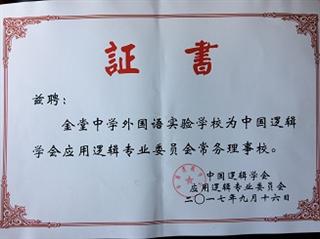 証書
兹聘：
金堂中学外国语实验学校为中国逻辑
学会应用逻辑专业委员会常务理事校。
中国逻辑学会
应用逻辑专业委员会
二〇一七年九月十六日